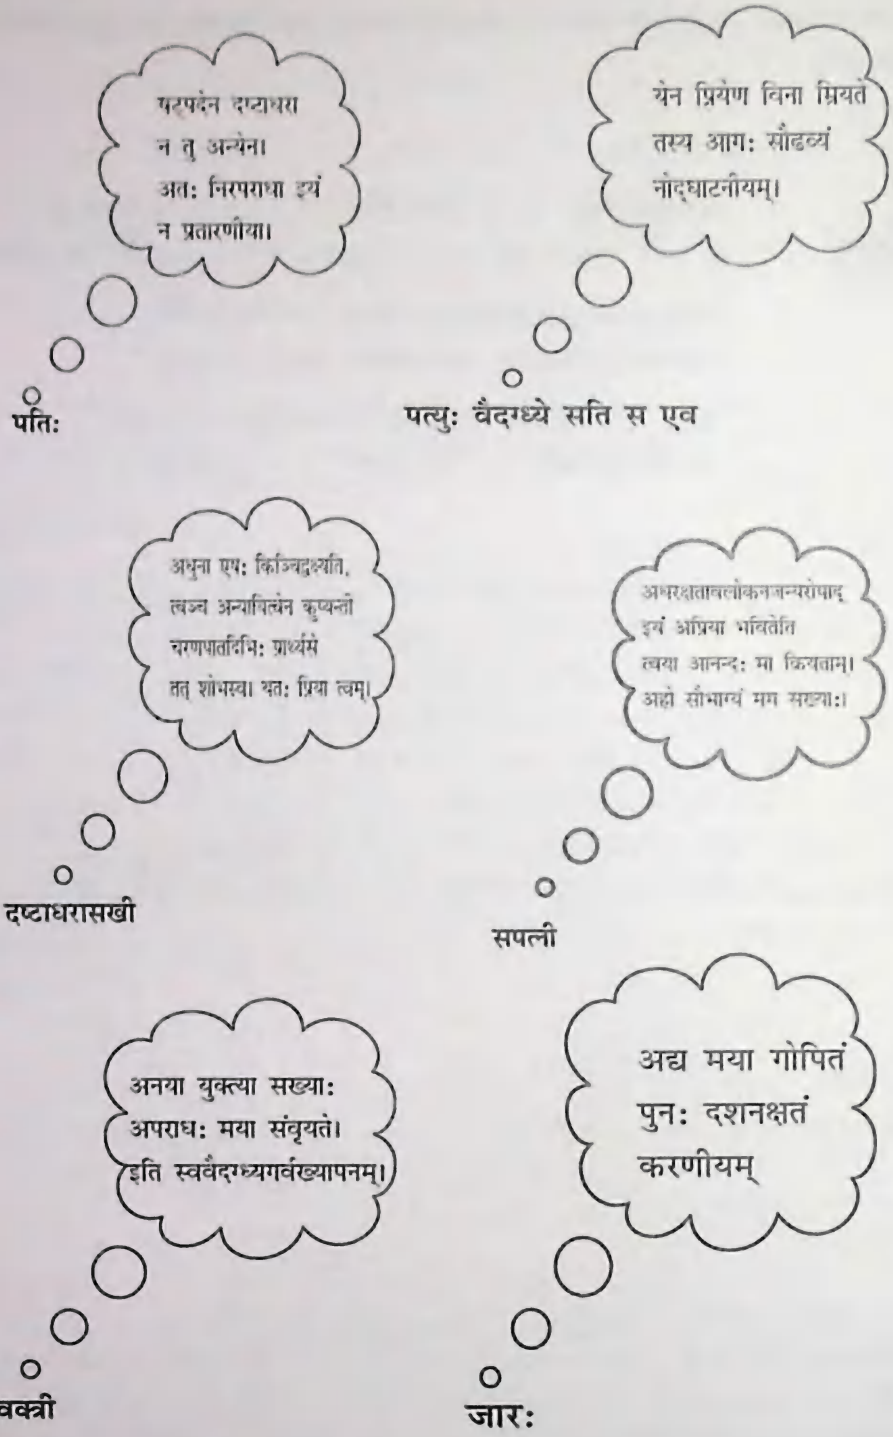 षट्पदेन दष्टाधरा
न तु अन्येन।
अतः निरपराधा इयं
न प्रतारणीया।
पतिः
येन प्रियेण विना म्रियते
तस्य आगः सौढव्यं
नोद्घाटनीयम्।
पत्युः वैदग्ध्ये सति स एव
अधुना एषः किञ्चिद्वक्ष्यति,
त्वञ्च अन्यायित्वेन कुप्यन्ती
चरणपातदिभिः प्रार्थ्यसे
तत् शोभस्व। यतः प्रिया त्वम्।
दष्टाधरासखी
अधरक्षतावलोकनजन्यरोषाद्
इयं अप्रिया भवितेति
त्वया आनन्दः मा कियताम्।
अहो सौभाग्यं मम सख्याः।
सपत्नी
अनया युक्त्या सख्याः
अपराधः मया संवृयते।
इति स्ववैदग्ध्यगर्वख्यापनम्।
वक्त्री
अद्य मया गोपितं
पुनः दशनक्षतं
करणीयम्
जारः